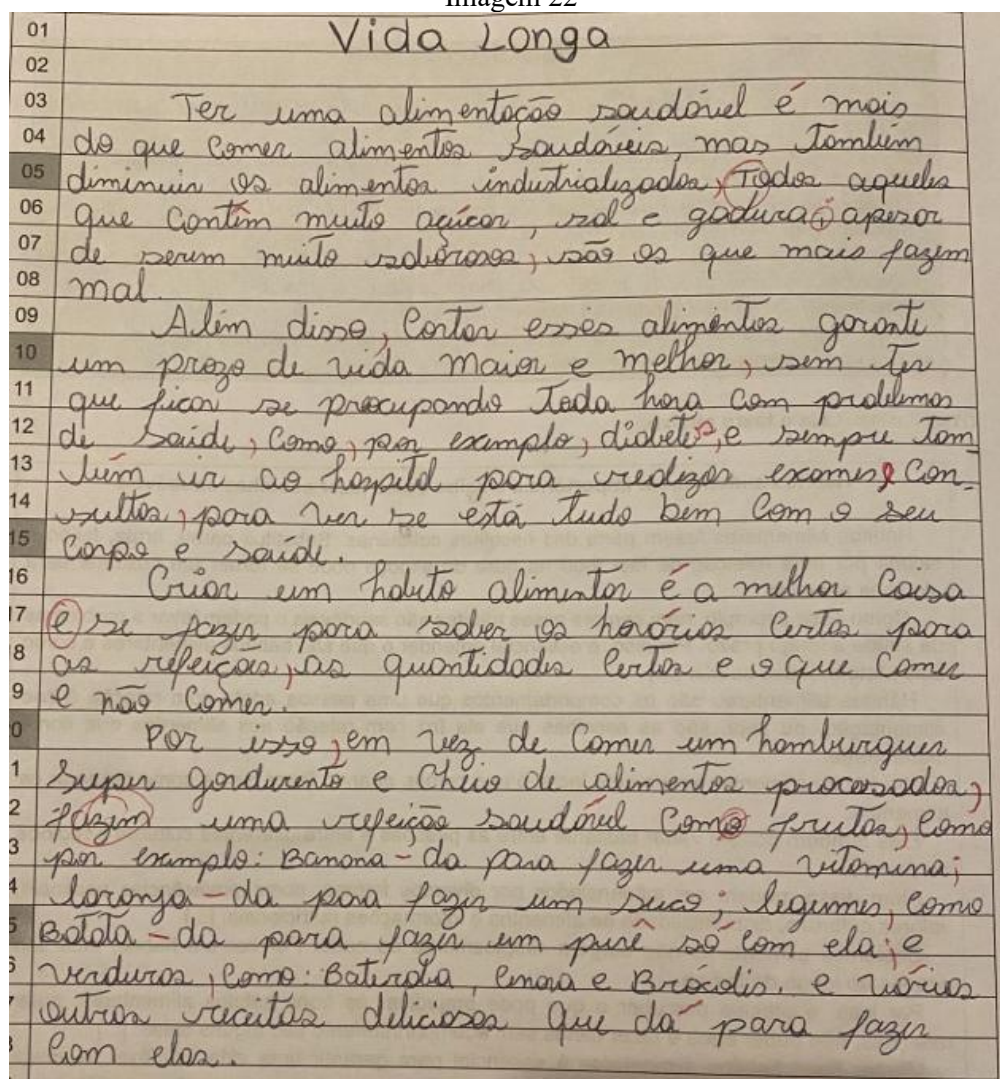 Imagem 22
01 Vida Longa
02
03 Ter uma alimentação saudável é mais
04 do que comer alimentos saudáveis, mas também
05 diminuir os alimentos industrializados, Todos aqueles
06 que contêm muito açúcar, sal e gadura, apesar
07 de serem muito saborosos, são os que mais fazem
08 mal.
09 Além disso, cortar esses alimentos garante
10 um prazo de vida maior e melhor, sem ter
11 que ficar se preocupando toda hora com problemas
12 de saúde, como, por exemplo, diabetes, e sempre tam
13 bém ir ao hospital para realizar exames, con-
14 sultas, para ver se está tudo bem com o seu
15 corpo e saúde.
16 Criar um habito alimentar é a melhor coisa
17 e se fazer para saber os horários certos para
8 as refeições, as quantidades certas e o que comer
9 e não comer.
0 Por isso, em vez de comer um hamburguer
1 super gordurento e cheio de alimentos processados,
2 fazem uma refeição saudável como frutas, como
3 por exemplo: Banana - da para fazer uma vitamina;
4 laranja - da para fazer um suco; legumes, como
5 Batata - da para fazer um purê só com ela; e
verduras, como: Baterraba, e Brócolis. e vários
outras receitas deliciosas que dá para fazer
com elas.